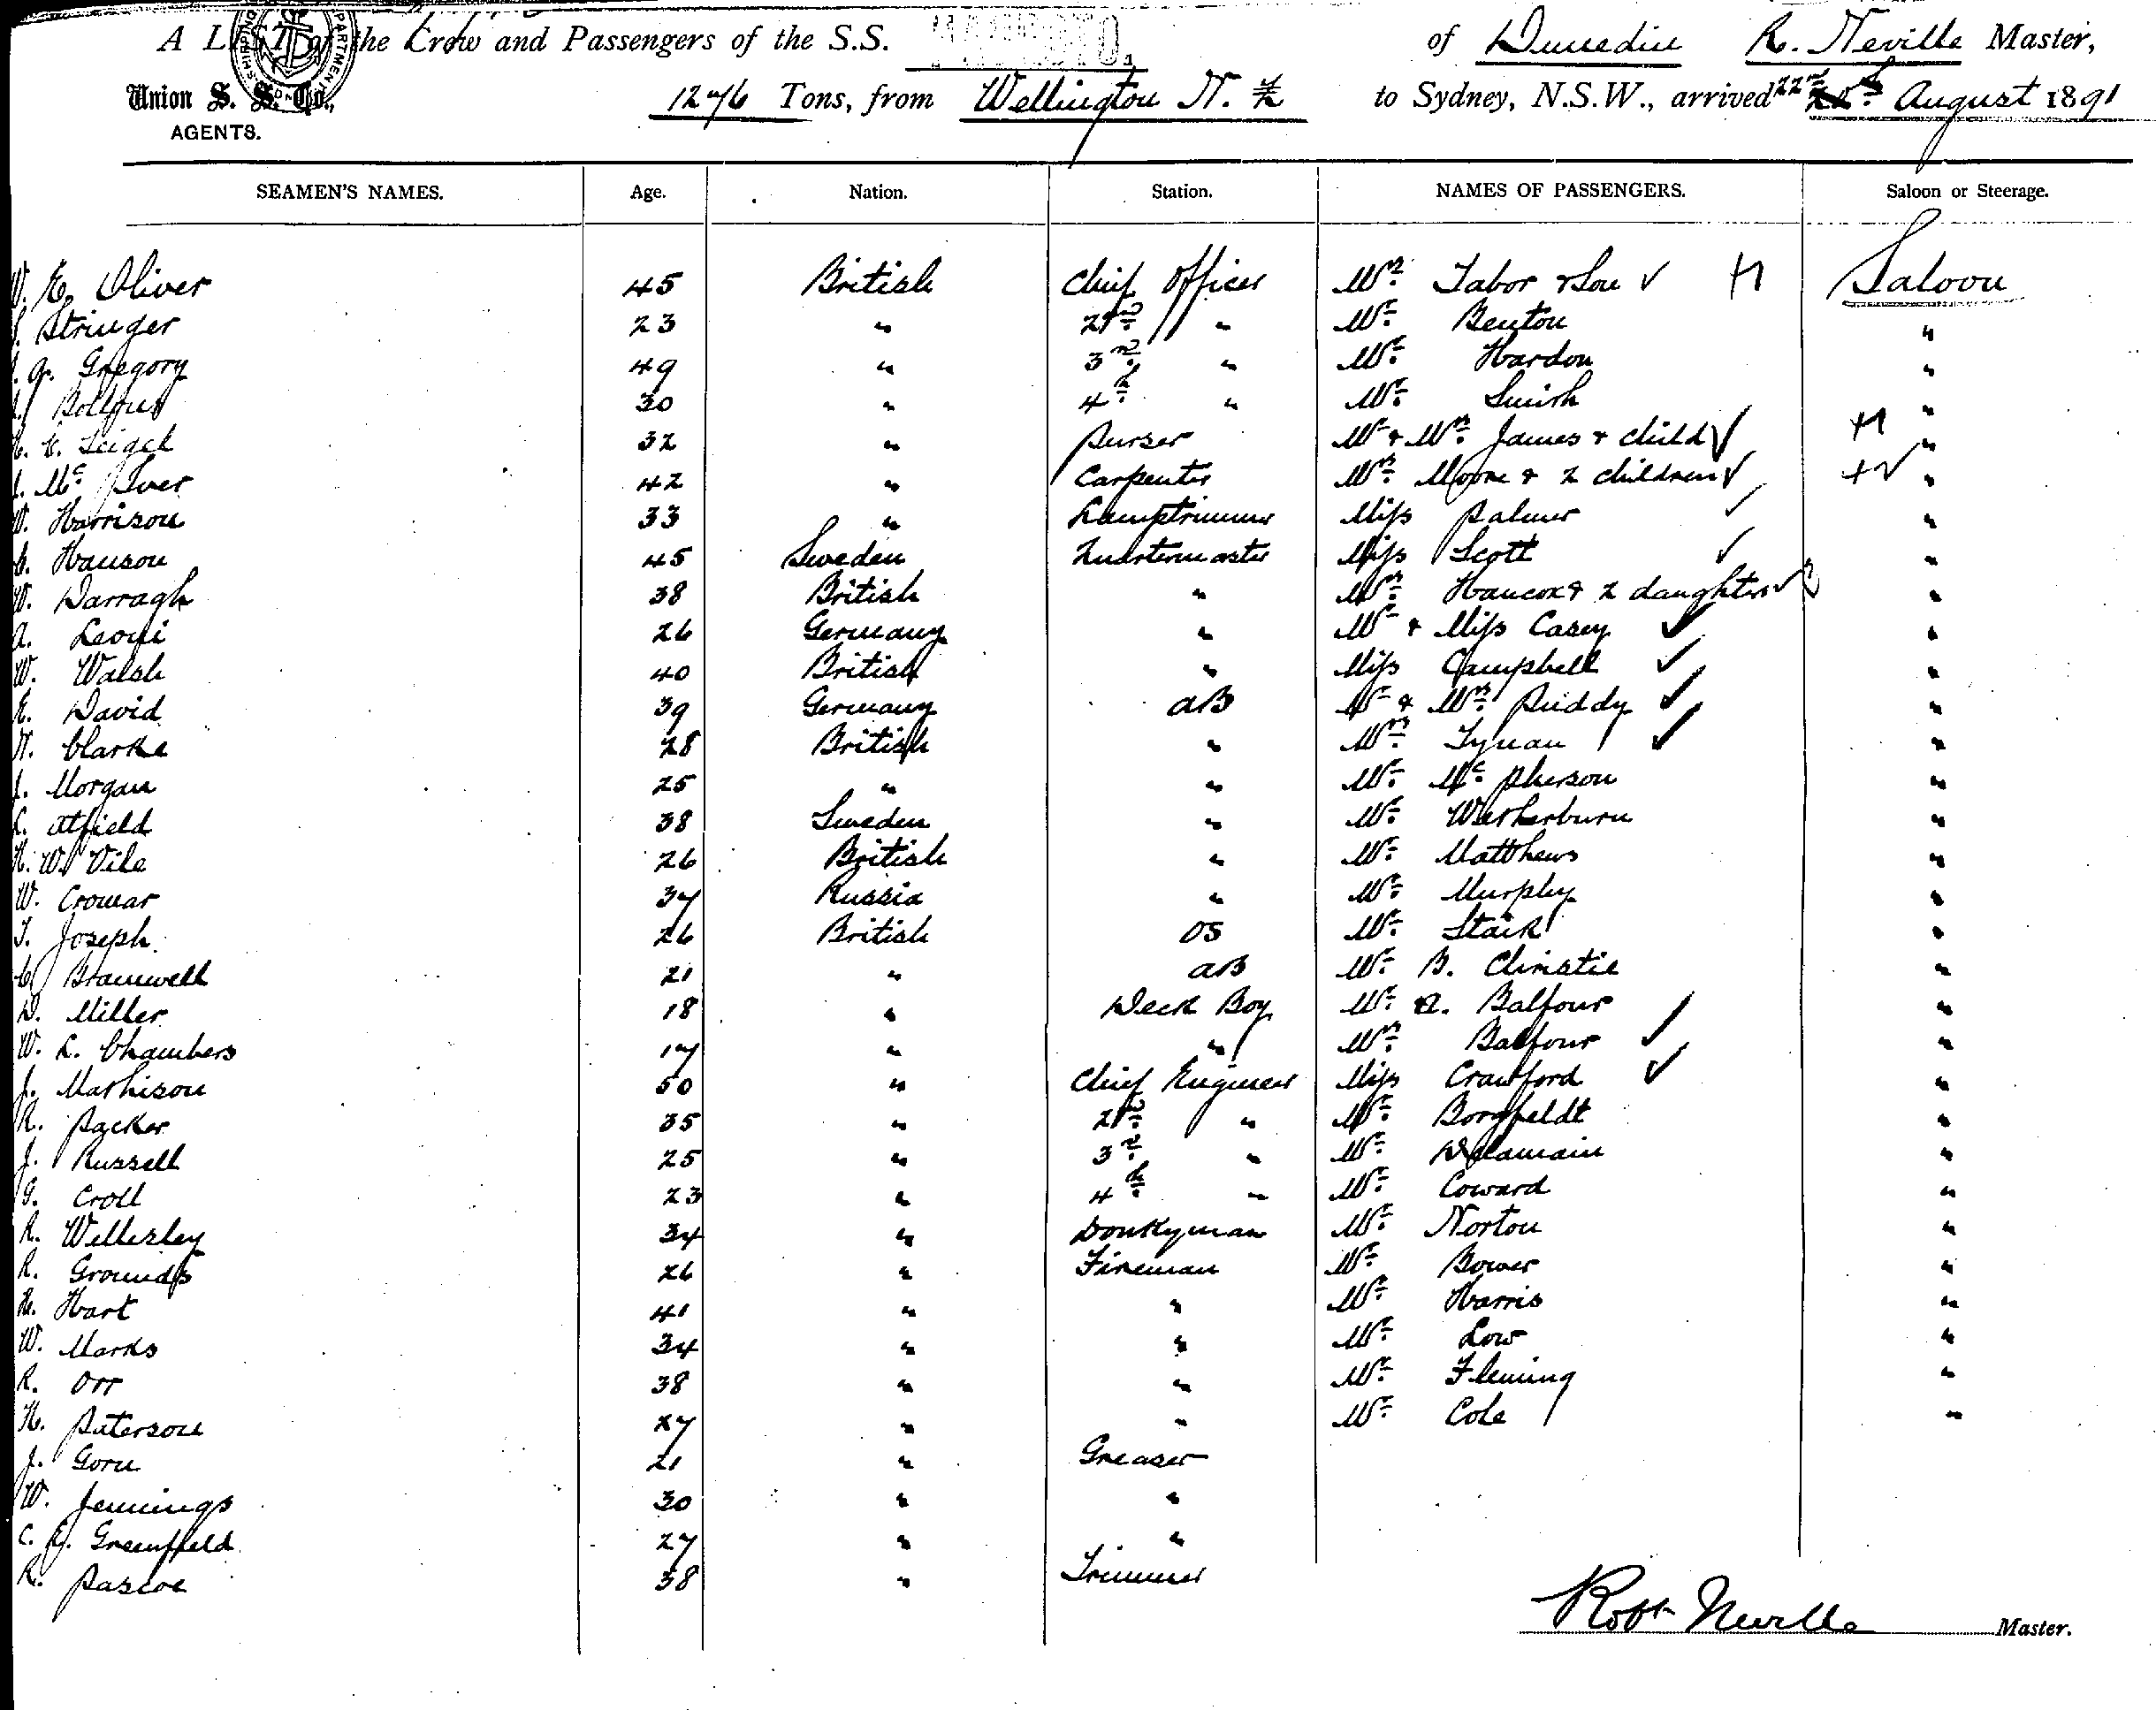 A LIST of the Crew and Passengers of the S.S. of Dunedin R. Neville Master,
Union S. S. Co., AGENTS. 1276 Tons, from Wellington N.Z to Sydney, N.S.W., arrived 22nd August 1891
SEAMEN'S NAMES. Age. Nation. Station. NAMES OF PASSENGERS. Saloon or Steerage.
W. E. Oliver 45 British Chief Officer Mrs Tabor & Son ✓ Saloon
Stringer 23 " 2nd " Mr Benton "
Gregory 49 " 3rd " Mr Hardon "
30 " 4th " Mr Smith "
32 " Purser Mr & Mrs James & child ✓ "
Mc Iver 42 " Carpenter Mrs Moore & 2 children ✓ "
W. Harrison 33 " Lamptrimmer Miss Palmer ✓ "
Hanson 45 Sweden Quartermaster Miss Scott ✓ "
W. Darragh 38 British " Mrs Hancox & 2 daughters ✓ "
A. Leoni 26 Germany " Mr & Miss Casey ✓ "
W. Walsh 40 British " Miss Campbell ✓ "
E. David 39 Germany AB Mr & Mrs Priddy ✓ "
N. Clarke 28 British " Mrs Tynan ✓ "
J. Morgan 25 " " Mr McPherson "
Atfield 38 Sweden " Mr Wetherburn "
H. W. Vile 26 British " Mr Matthews "
W. Cromar 37 Russia " Mr Murphy "
T. Joseph 26 British OS Mr Stark "
C. Bramwell 21 " AB Mr B. Christie "
D. Miller 18 " Deck Boy Mr A. Balfour "
W. L. Chambers 17 " " Mrs Balfour ✓ "
J. Mathison 50 " Chief Engineer Miss Crawford ✓ "
R. Packer 35 " 2nd " Mr Borgfeldt "
J. Russell 25 " 3rd " Mr Delamain "
G. Croll 23 " 4th " Mr Coward "
R. Wellesley 34 " Donkyman Mr Norton "
R. Grounds 26 " Fireman Mr Bower "
H. Hart 41 " " Mr Harris "
W. Marks 34 " " Mr Low "
R. Orr 38 " " Mr Fleming "
H. Paterson 27 " " Mr Cole "
J. Gorn 21 " Greaser
W. Jennings 30 " "
C. E. Greenfield 27 " "
R. Pascoe 38 " Trimmer
Robt Neville Master.